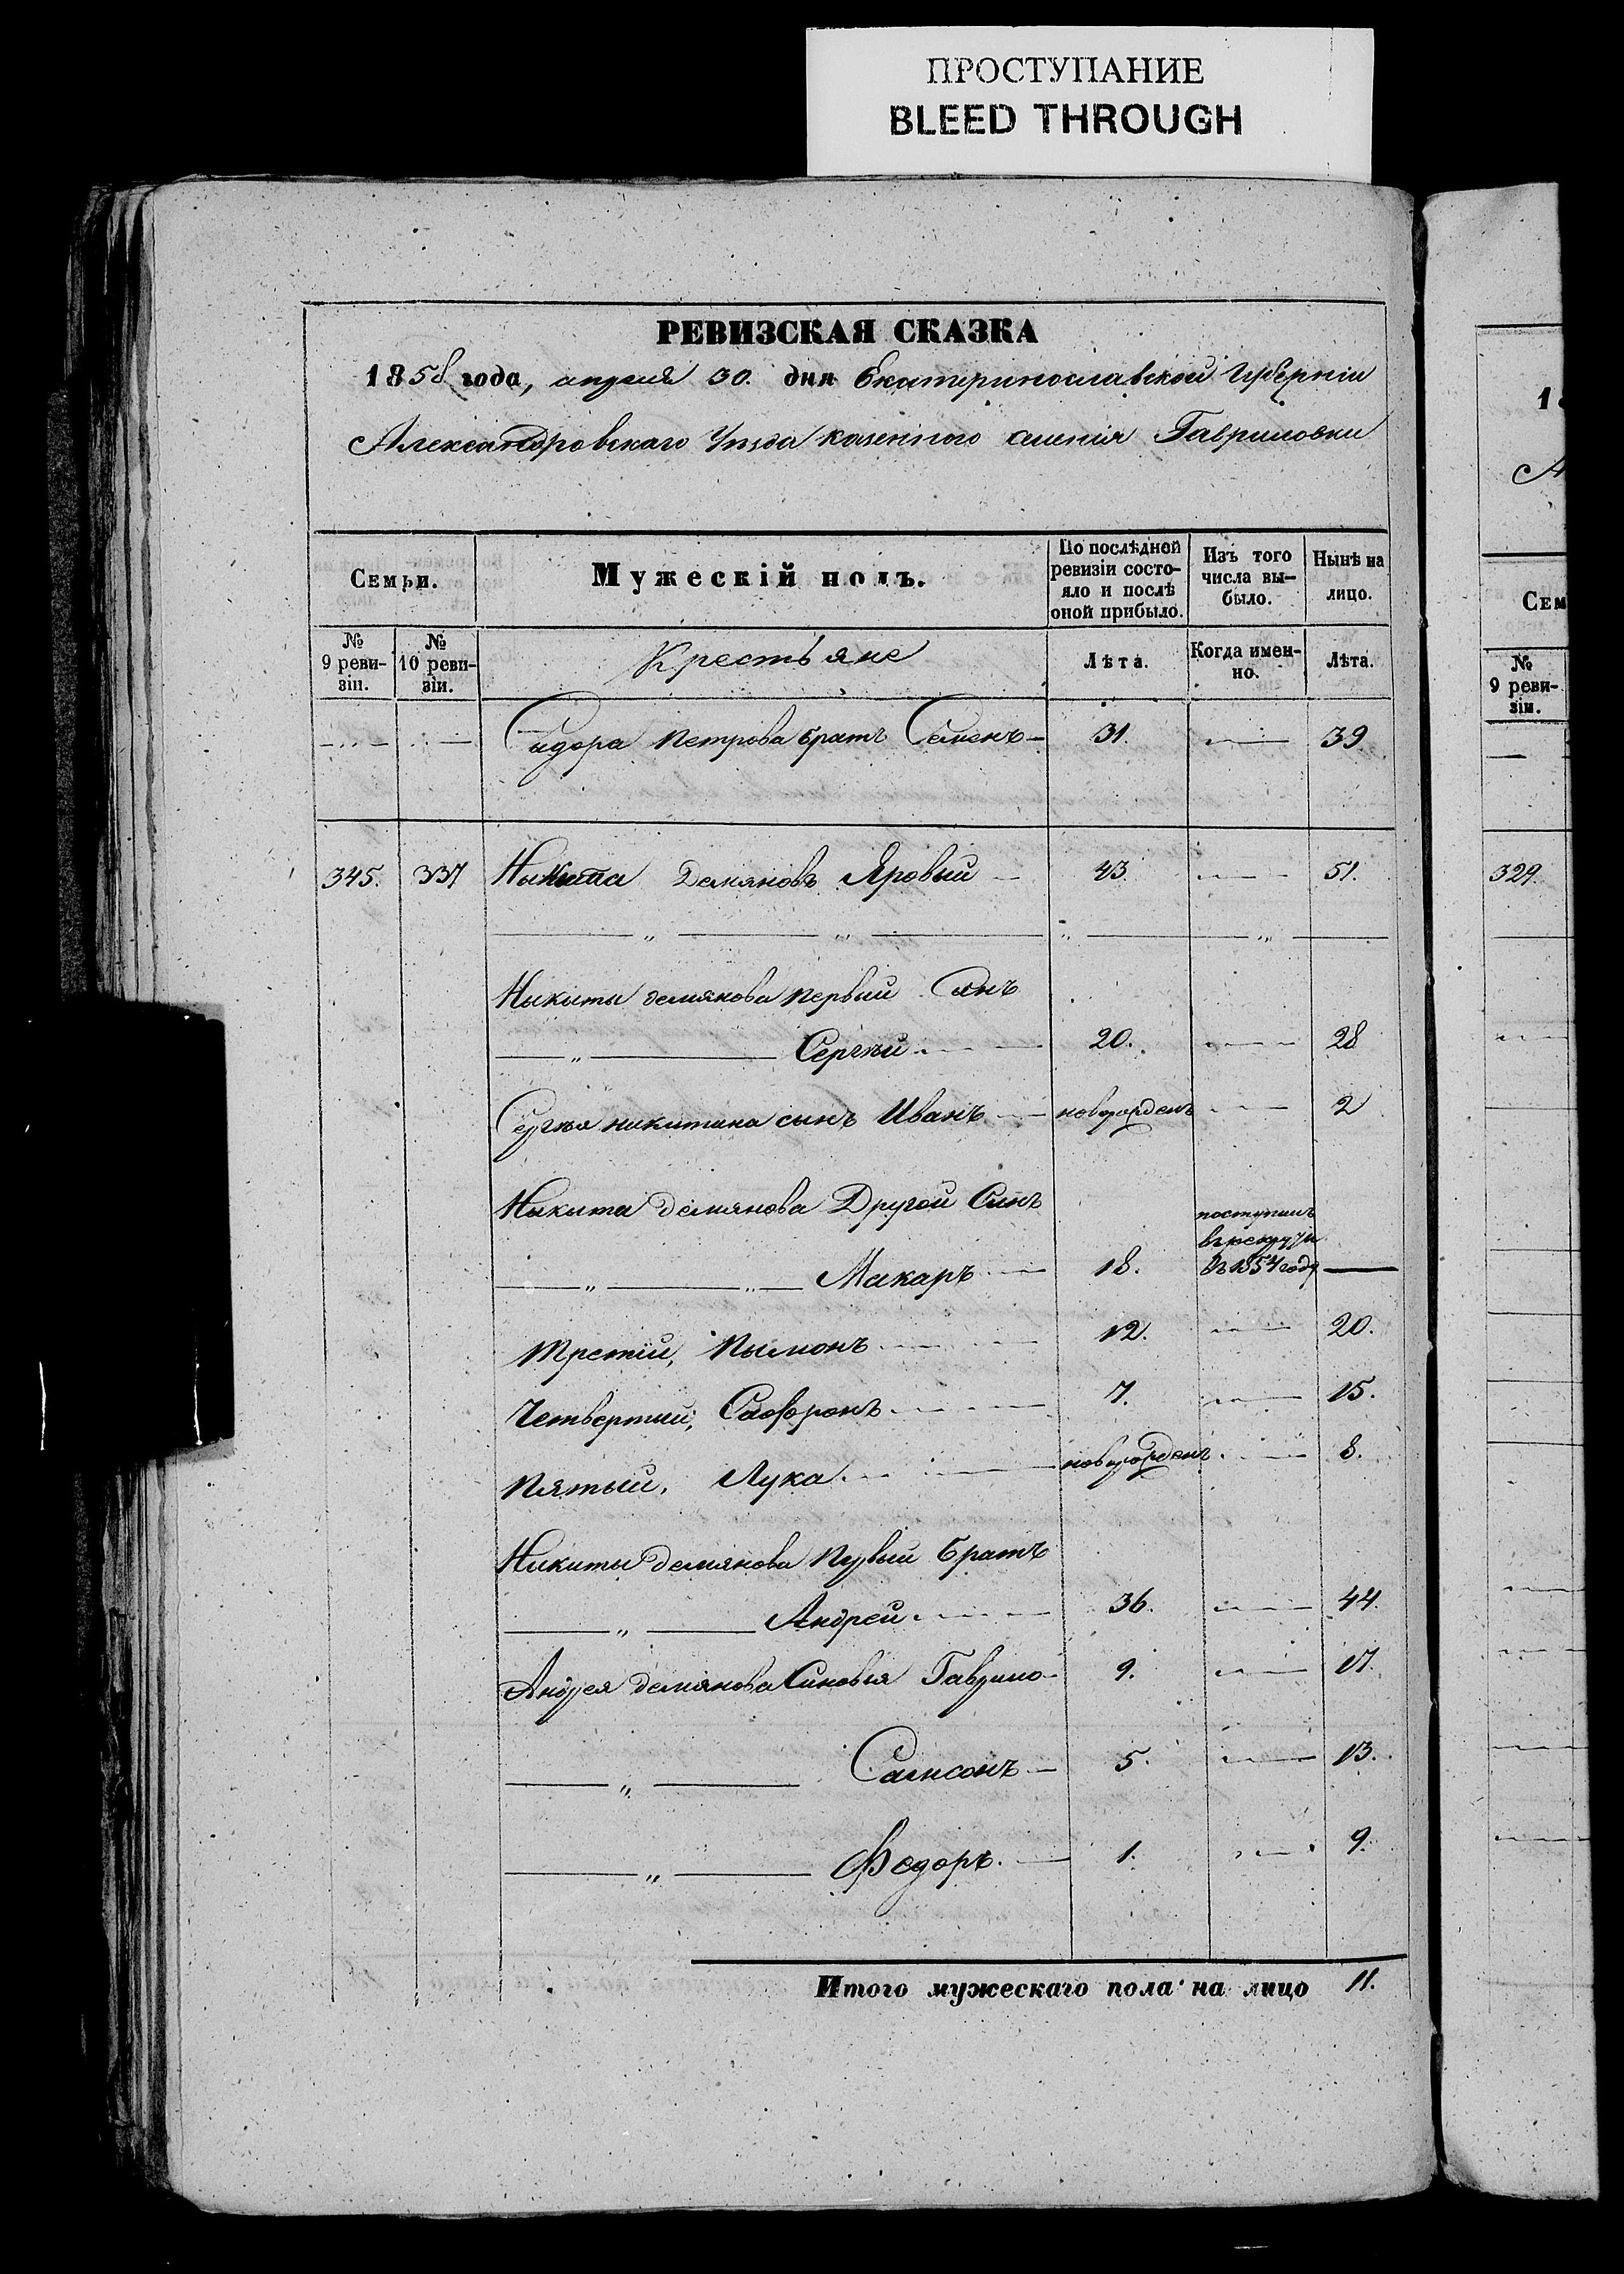 ПРОСТУПАНИЕ
BLEED THROUGH
РЕВИЗСКАЯ СКАЗКА
1858 года, апреля 30. дня Екатеринославской Губернiи
Александровскаго Уезда казенного селенiя Гавриловки
Семьи.
Мужескiй полъ.
По послѣдней ревизiи состояло и послѣ оной прибыло.
Изъ того числа выбыло.
Нынѣ на лицо.
№ 9 ревизiи.
№ 10 ревизiи.
Крестьяне
Лѣта.
Когда именно.
Лѣта.
Сидора Петрова братъ Семенъ 31. 39
345. 337 Никита Демяновъ Яровый 43 51.
Никиты демянова первый Сынъ
Сергѣй 20. 28
Сергѣя никитина сынъ Иванъ новорожденъ 2
Никита демянова Другой Синъ
Макаръ 18. поступилъ
в рекруты
въ 1854 году
Третiй, Пымонъ 12. 20.
Четвертий, Сафронъ 7. 15.
Пятый, Лука новорожденъ 8.
Никиты демянова Первый братъ
Андрей 36. 44.
Андрея демянова Синовья Гаврило 9. 17.
Самсонъ 5. 13.
Федоръ. 1. 9.
Итого мужескаго пола на лицо 11.
1
А
Сем
№
9 реви-
зiи.
329.